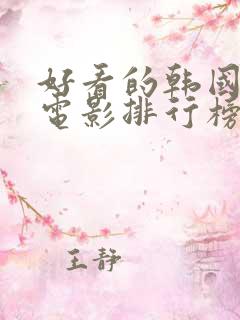 好看的韩國
電影排行榜
王静